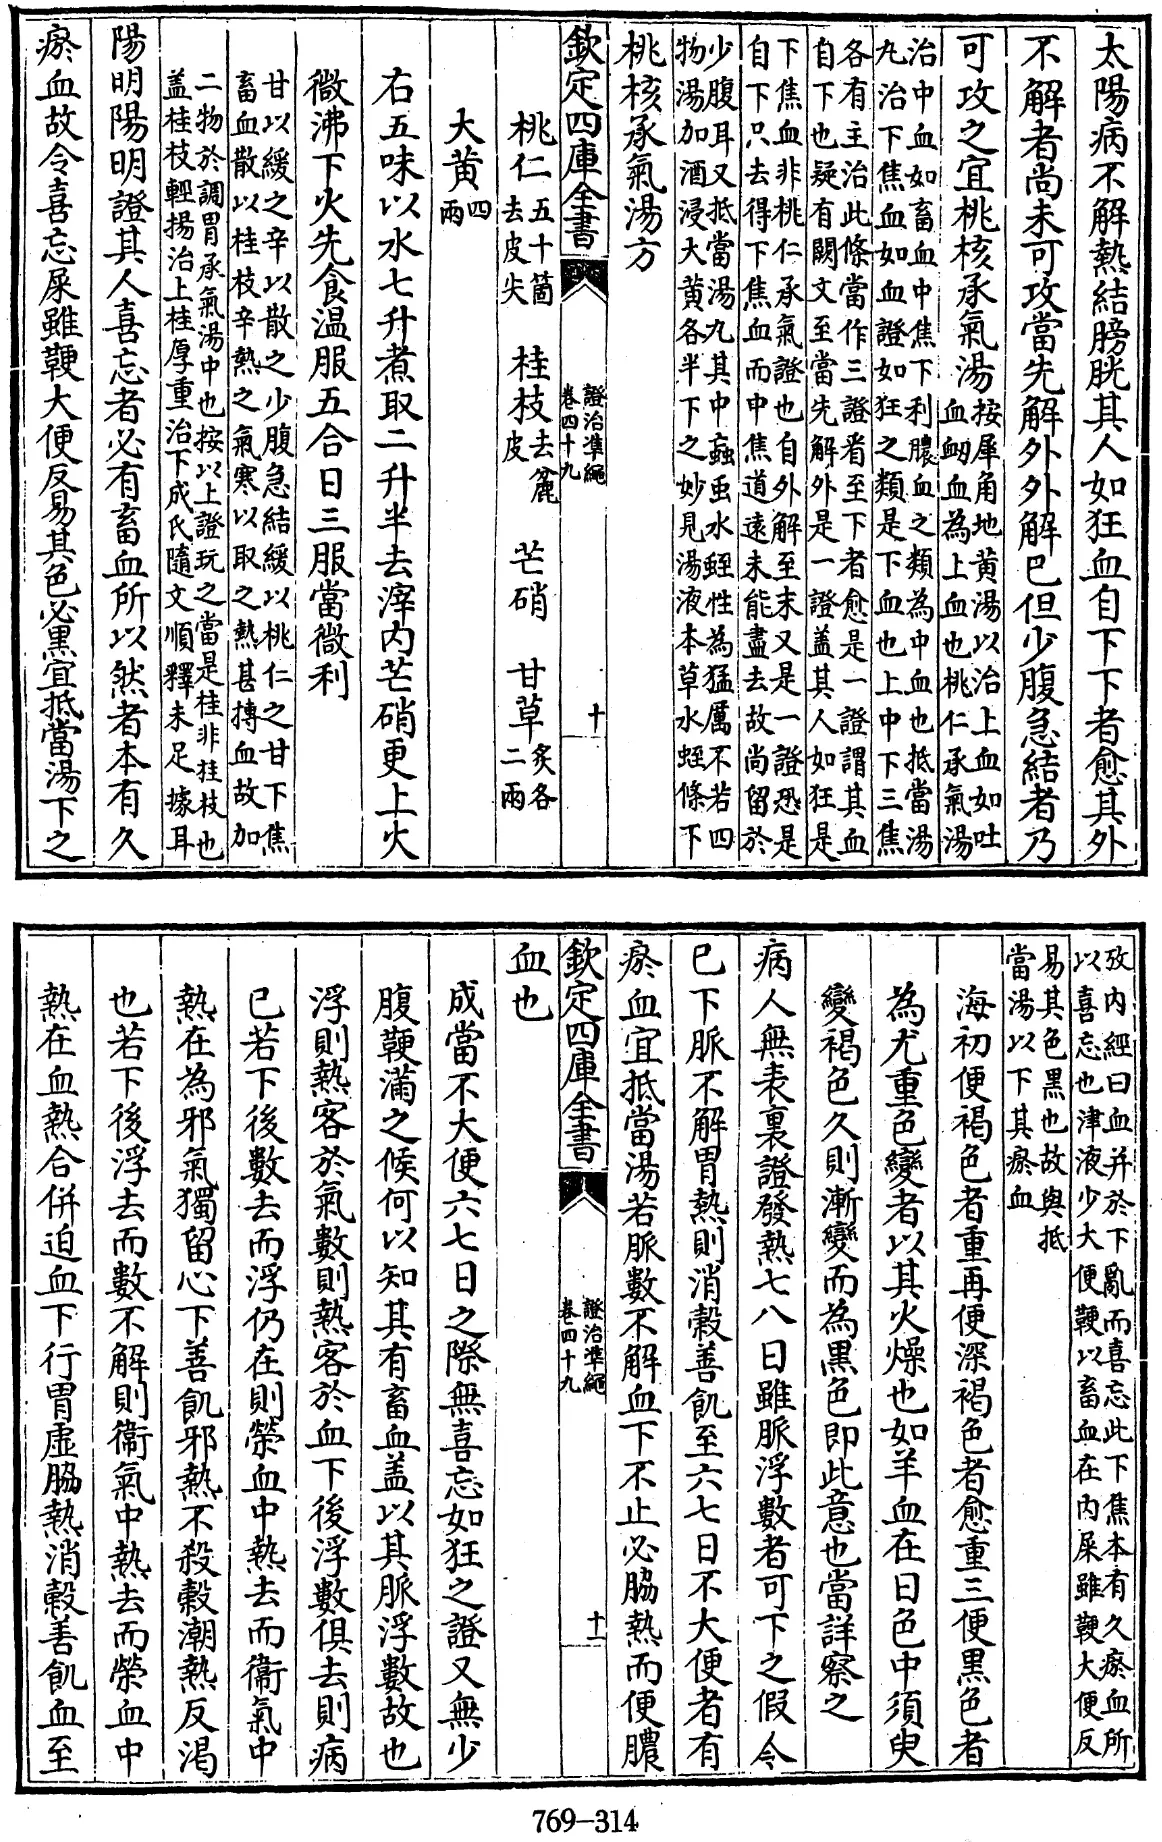 太陽病不解熱結膀胱其人如狂血自下下者愈其外
不解者尚未可攻當先解外外解巳但少腹急結者乃
可攻之宜桃核承氣湯按犀角地黃湯以治上血如吐
血衂血為上血也桃仁承氣湯
治中血如畜血中焦下利膿血之類為中血也抵當湯
丸治下焦血如血證如狂之類是下血也上中下三焦
各有主治此條當作三證看至下者愈是一證謂其血
自下也疑有闕文至當先解外是一證盖其人如狂是
下焦血非桃仁承氣證也自外解至末又是一證恐是
自下只去得下焦血而中焦道遠未能盡去故尚留於
少腹耳又抵當湯丸其中蝱虫水蛭性為猛厲不若四
物湯加酒浸大黃各半下之妙見湯液本草水蛭條下
桃核承氣湯方
欽定四庫全書
證治準繩
卷四十九
十
桃仁五十箇
去皮尖 桂枝去麄
皮 芒硝 甘草炙各
二兩
大黃四
兩
右五味以水七升煮取二升半去滓内芒硝更上火
微沸下火先食温服五合日三服當微利
甘以緩之辛以散之少腹急結緩以桃仁之甘下焦
畜血散以桂枝辛熱之氣寒以取之熱甚搏血故加
二物於調胃承氣湯中也按以上證玩之當是桂非桂枝也
盖桂枝輕揚治上桂厚重治下成氏隨文順釋未足據耳
陽明陽明證其人喜忘者必有畜血所以然者本有久
瘀血故令喜忘屎雖鞕大便反易其色必黑宜抵當湯下之
攷内經曰血并於下亂而喜忘此下焦本有久瘀血所
以喜忘也津液少大便鞕以畜血在内屎雖鞕大便反
易其色黑也故與抵
當湯以下其瘀血
海初便褐色者重再便深褐色者愈重三便黑色者
為尤重色變者以其火燥也如羊血在日色中須臾
變褐色久則漸變而為黑色即此意也當詳察之
病人無表裏證發熱七八日雖脈浮數者可下之假令
巳下脈不解胃熱則消穀善飢至六七日不大便者有
瘀血宜抵當湯若脈數不解血下不止必脇熱而便膿
欽定四庫全書
證治準繩
卷四十九
十一
血也
成當不大便六七日之際無喜忘如狂之證又無少
腹鞕滿之候何以知其有畜血盖以其脈浮數故也
浮則熱客於氣數則熱客於血下後浮數俱去則病
巳若下後數去而浮仍在則榮血中熱去而衞氣中
熱在為邪氣獨留心下善飢邪熱不殺穀潮熱反渴
也若下後浮去而數不解則衞氣中熱去而榮血中
熱在血熱合併迫血下行胃虚脇熱消穀善飢血至
769-314